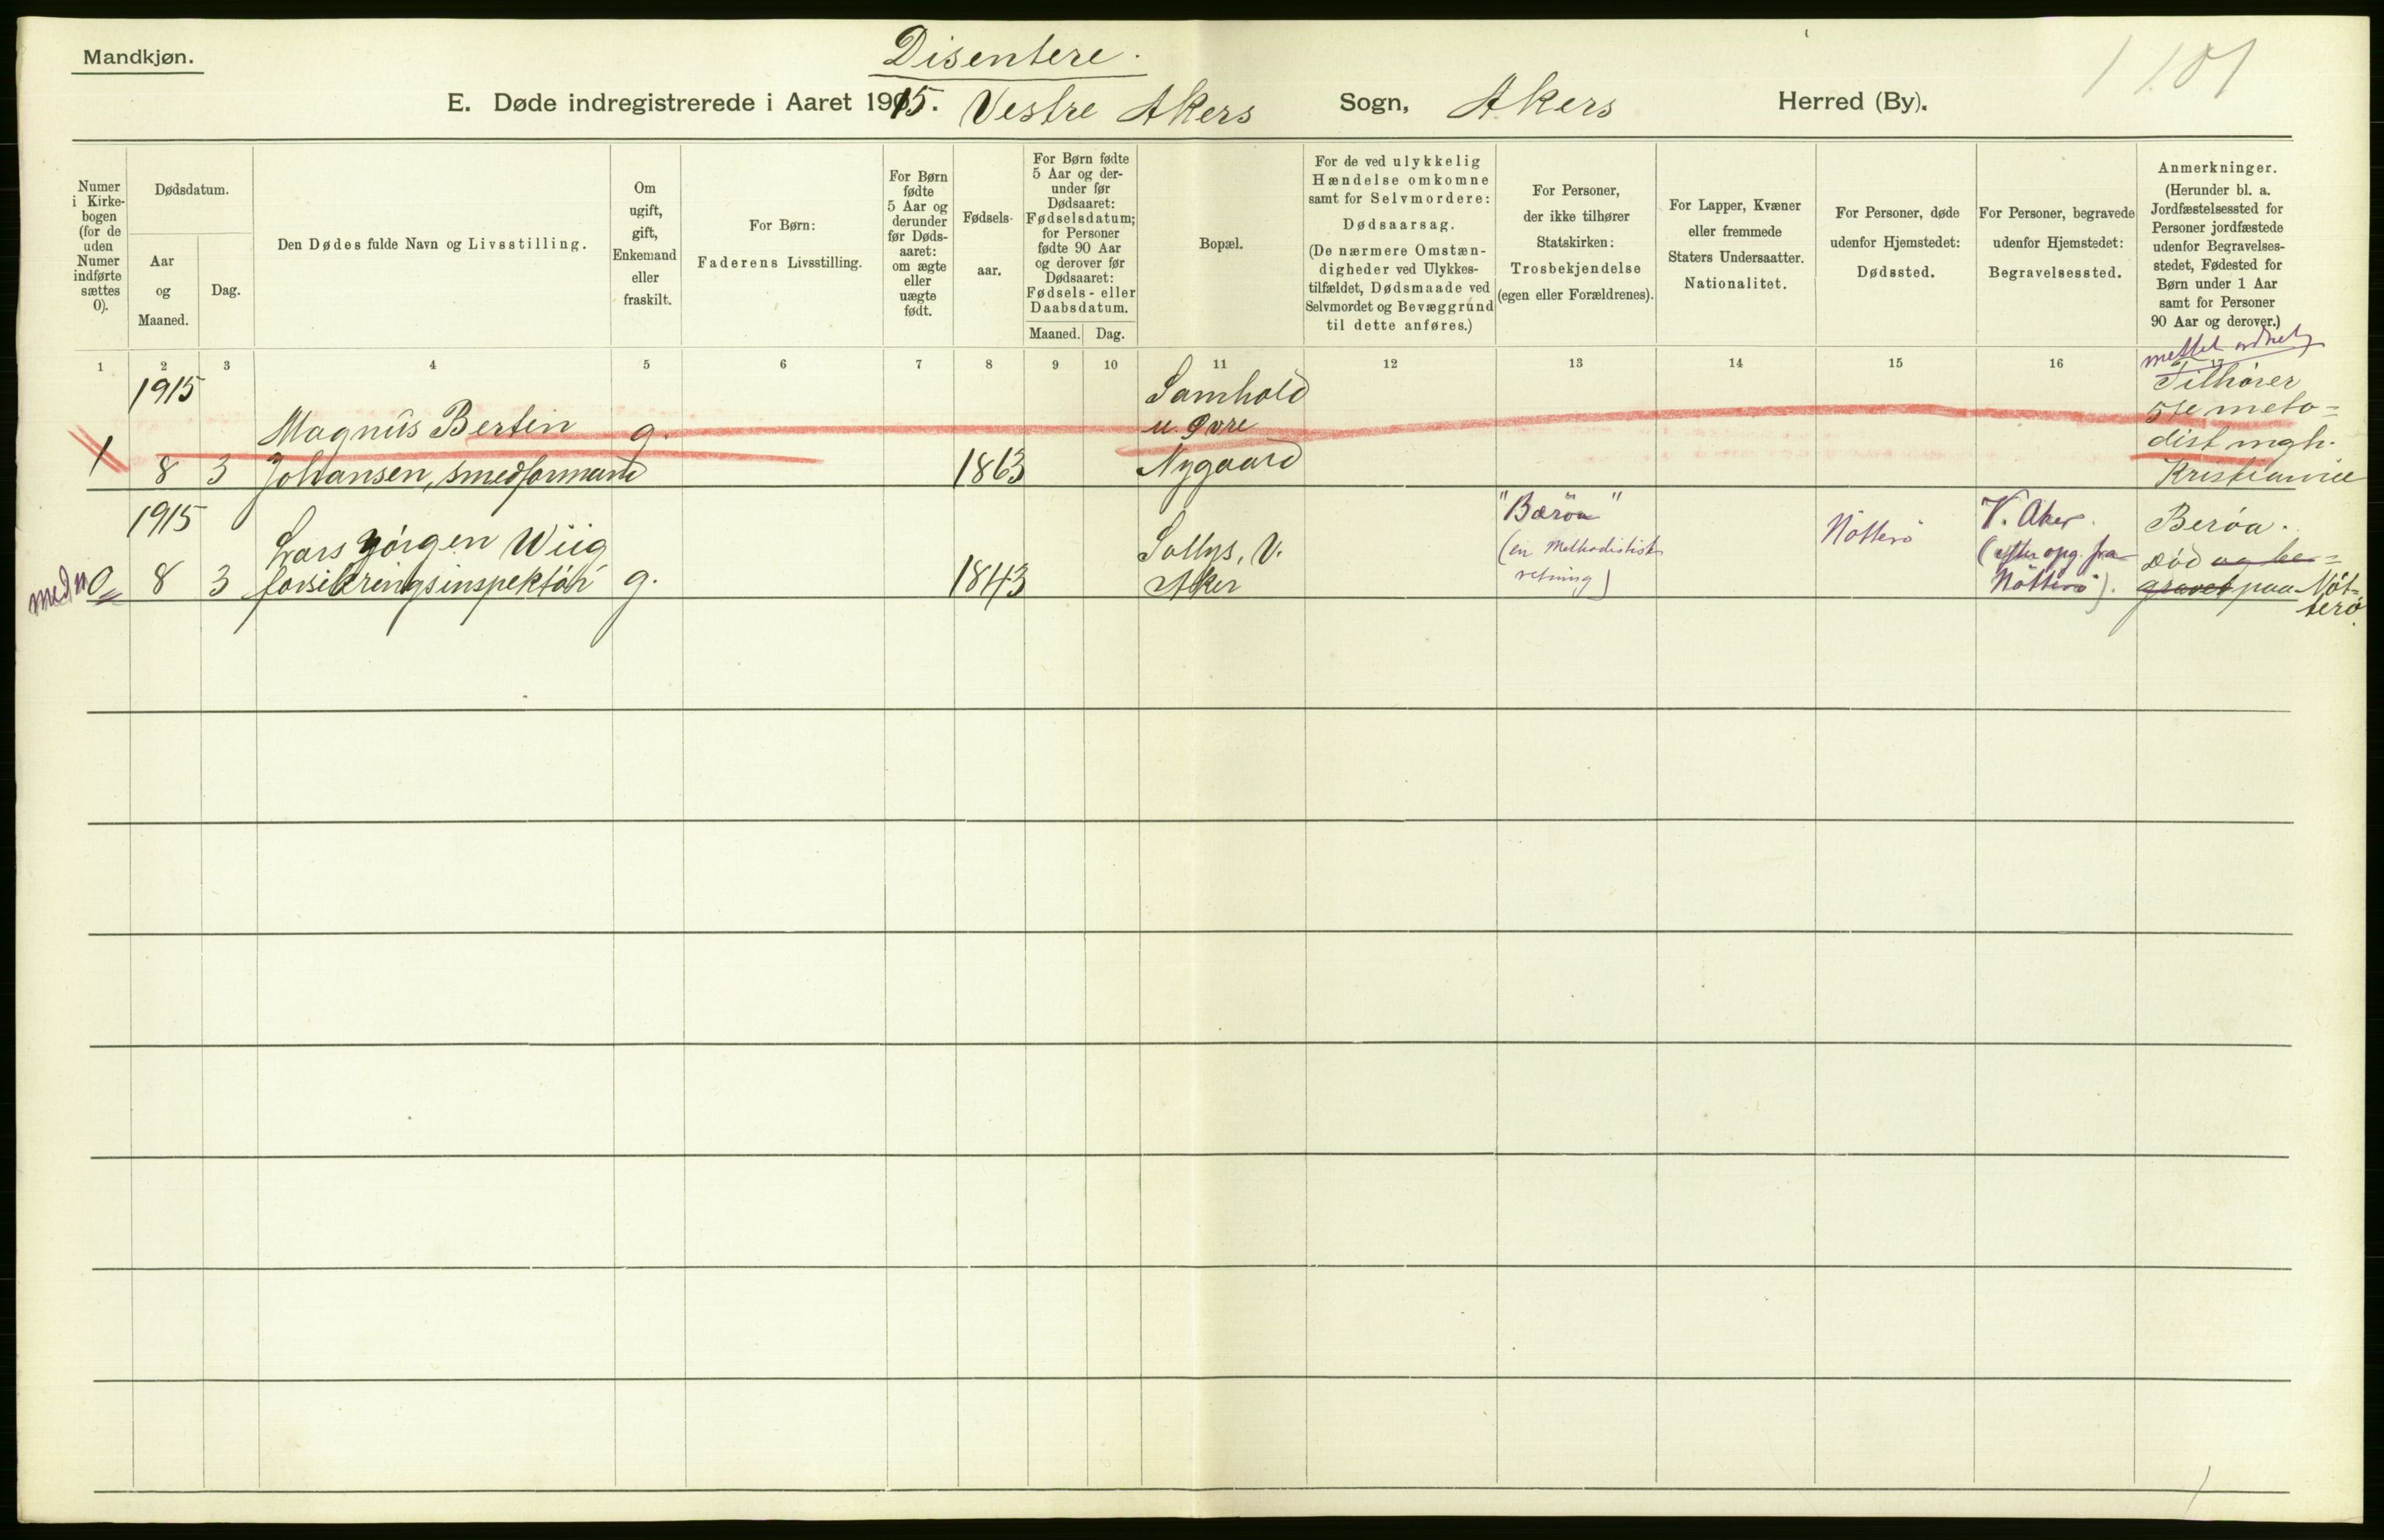 Mandkjøn.
Disentere.
1 101
E. Døde indregistrerede i Aaret 1915. Vestre Akers Sogn, Akers Herred (By).
Numer
i Kirke-
bogen
(for de
uden
Numer
indførte
sættes
0).
Dødsdatum.
Aar
og
Maaned.
Dag.
Den Dødes fulde Navn og Livsstilling.
Om
ugift,
gift,
Enkemand
eller
fraskilt.
For Børn:
Faderens Livsstilling.
For Børn
fødte
5 Aar og
derunder
før Døds-
aaret:
om ægte
eller
uægte
født.
Fødsels-
aar.
For Børn fødte
5 Aar og der-
under før
Dødsaaret:
Fødselsdatum;
for Personer
fødte 90 Aar
og derover før
Dødsaaret:
Fødsels- eller
Daabsdatum.
Maaned. Dag.
Bopæl.
For de ved ulykkelig
Hændelse omkomne
samt for Selvmordere:
Dødsaarsag.
(De nærmere Omstæn-
digheder ved Ulykkes-
tilfældet, Dødsmaade ved
Selvmordet og Bevæggrund
til dette anføres.)
For Personer,
der ikke tilhører
Statskirken:
Trosbekjendelse
(egen eller Forældrenes).
For Lapper, Kvæner
eller fremmede
Staters Undersaatter.
Nationalitet.
For Personer, døde
udenfor Hjemstedet:
Dødssted.
For Personer, begravede
udenfor Hjemstedet:
Begravelsessted.
Anmerkninger.
(Herunder bl. a.
Jordfæstelsessted for
Personer jordfæstede
udenfor Begravelses-
stedet, Fødested for
Børn under 1 Aar
samt for Personer
90 Aar og derover.)
1 2 3 4 5 6 7 8 9 10 11 12 13 14 15 16 17
1915
1 8 3
Magnus Bertin
Johansen, smedformand
g.
1863
Samhold
u. Øvre
Nygaard
Tilhører
5te meto=
dist mgh.
Kristiania
1915
0 8 3
Lars Jörgen Wiig
forsikringsinspektör
g.
1843
Sollys, V.
Aker
"Bæröa"
(en Methodistisk
retning)
Nötterö
V. Aker.
(efter opg. fra
Nötterö).
Beröa.
Död og be=
gravet paa Nöt=
terö.